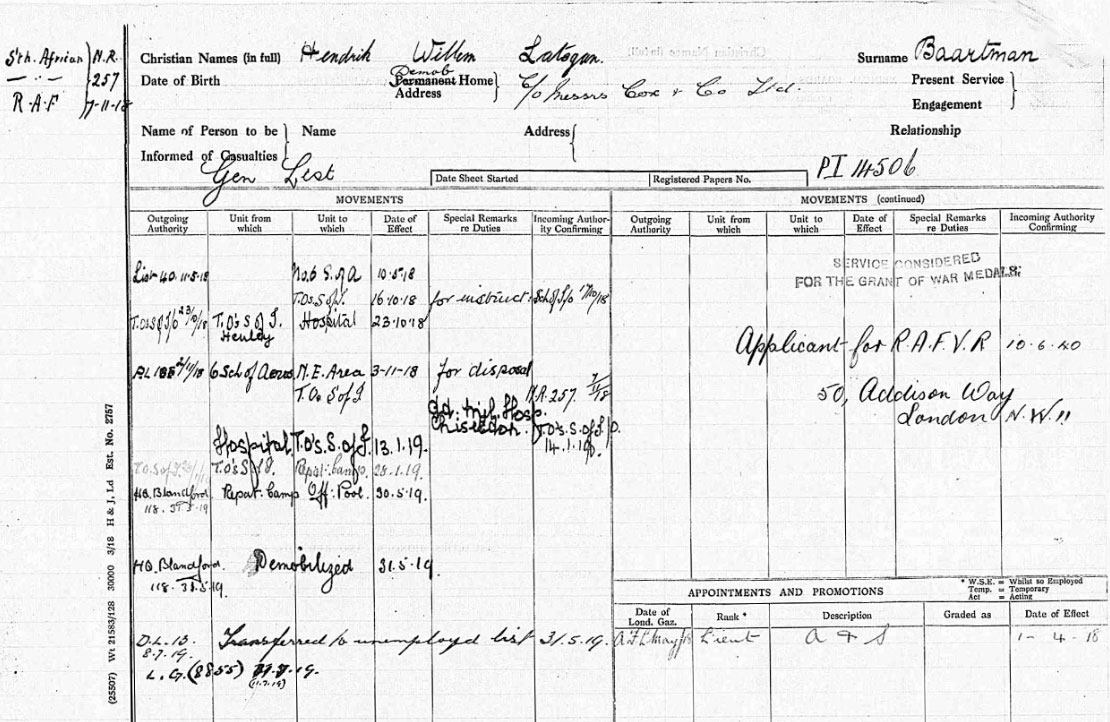 Sth. African } N.R.
— " — } 257
R.A.F } 7-11-18
Christian Names (in full) Hendrik Willem Latsgan. Surname Baartman
Date of Birth Demob Permanent Home Address } C/o Messrs Cox & Co Ltd. Present Service Engagement }
Name of Person to be Informed of Casualties } Name Address { Relationship
Gen List Date Sheet Started Registered Papers No. PI 14506
MOVEMENTS
Outgoing Authority Unit from which Unit to which Date of Effect Special Remarks re Duties Incoming Authority Confirming
List 40. 11.5.18 No.6 S. of A 10.5.18
T.Os.S of I. 16.10.18 for instruct: Sch of I/o
T.O's S of I. Henley Hospital 23.10.18
6 Sch of Aeros N.E. Area 3-11-18 for disposal
T.Os S of I N.R. 257. 7/11/18
Hospital T.O's. S. of I. 13.1.19. Hosp. Chiseldon. T.O's. S. of I/o. 14.1.19.
T.O's S of I. Repat. Camp. 28.1.19.
HQ. Blandford 118. 31.5.19 Repat. Camp Off. Pool. 30.5.19.
HQ. Blandford. 118. 31.5.19. Demobilized 31.5.19
D.L. 10. 8.7.19. Transferred to unemployed list 31.5.19.
L.G. (8855) 7.19.
(11.7.19)
MOVEMENTS (continued)
Outgoing Authority Unit from which Unit to which Date of Effect Special Remarks re Duties Incoming Authority Confirming
SERVICE CONSIDERED
FOR THE GRANT OF WAR MEDALS.
Applicant for R.A.F.V.R 10.6.40
50, Addison Way
London N.W.11
* W.S.E. = Whilst so Employed
Temp. = Temporary
Act = Acting
APPOINTMENTS AND PROMOTIONS
Date of Lond. Gaz. Rank * Description Graded as Date of Effect
Lieut A & S 1-4-18
(25507) Wt 21583/128 30000 3/18 H & J, Ld Est. No. 2757